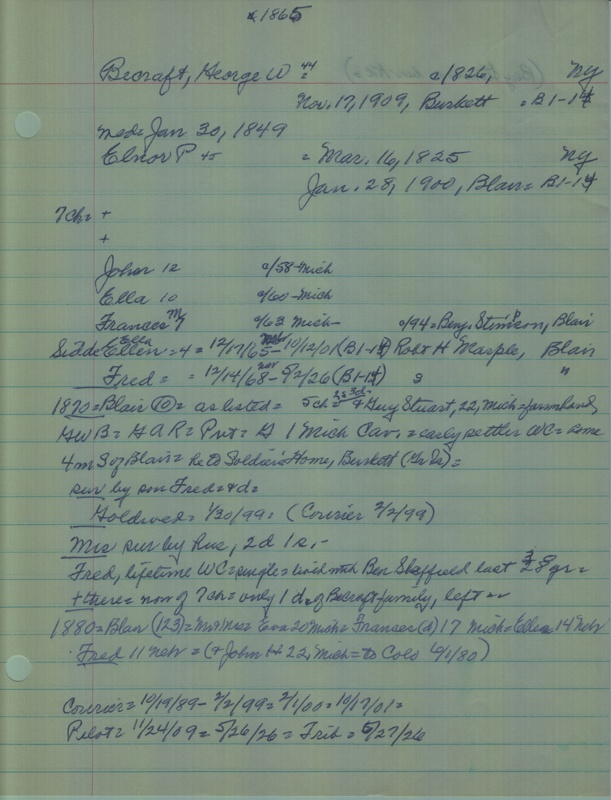 *1865
Becraft, George W 44 = c/1826, Ny
Nov. 17, 1909, Burkett = B1-14
med= Jan 30, 1849
Elnor P 45 = Mar. 16, 1825 Ny
Jan. 28, 1900, Blair = B1-14
7ch= +
+
John 12 c/58-Mich
Ella 10 c/60-Mich
Frances M 7 c/63 Mich- c/94= Benj. Stimson, Blair
Ellen = 4 = 12/17/65-10/12/01 (B1-14) Robt H Marple, Blair
Fred = = 12/14/68-5/2/26 (B1-14) "
1870=Blair (10)= as listed = 5ch= + Guy Stuart, 22, Mich=farmhand,
GWB= GAR= Pvt= G 1 Mich Cav. = early settler WC= home
4m S of Blair= he to Soldiers Home, Burkett (Gr Is)=
sur by son Fred=+d=
Goldwed= 1/30/99= (Courier 2/2/99)
Mrs sur by hus, 2d 1s,-
Fred, lifetime WC=single= lived with Ben Sheffield last 28yr=
+there= now of 7ch= only 1 d. of Becraft family, left=
1880=Blair (123)= Mr+Mrs= Eva 20 Mich= Frances (d) 17 Mich=Ellen 14 Nebr
Fred 11 Nebr = (+ John H 22, Mich=to Colo 6/1/80)
Courier= 10/19/89- 2/2/99= 2/1/00= 10/17/01=
Pilot= 11/24/09= 5/26/26= Trib= 5/27/26